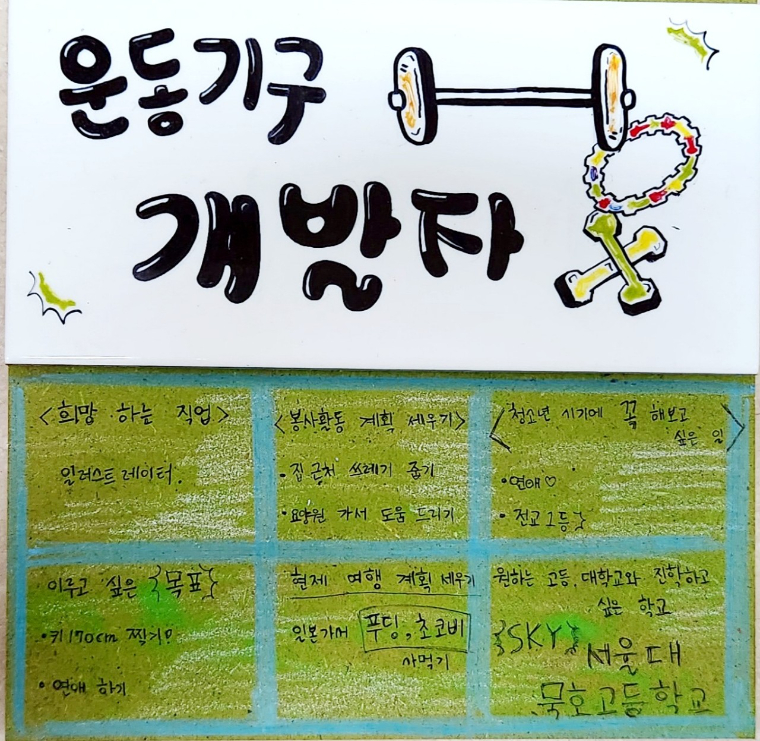 운동기구
개발자
<희망 하는 직업>
일러스트레이터.
<봉사활동 계획 세우기>
• 집 근처 쓰레기 줍기
• 요양원 가서 도움 드리기
<청소년 시기에 꼭 해보고
싶은 일>
• 연애♡
• 전교 1등
이루고 싶은 {목표}
• 키 170cm 찍기!
• 연애 하기
현제 여행 계획 세우기
일본가서 푸딩, 초코비
사먹기
원하는 고등, 대학교와 진학하고
싶은 학교
{SKY} 서울대
묵호고등학교